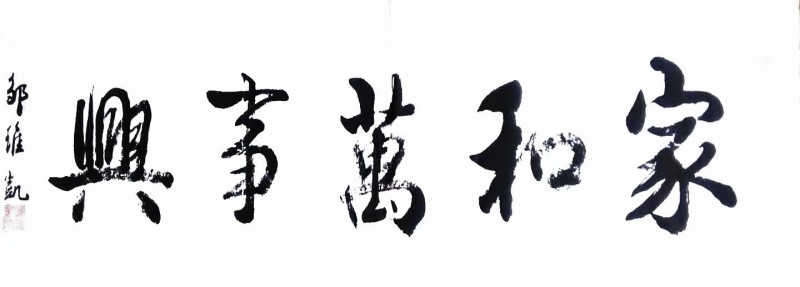 家和萬事興
邹維凱